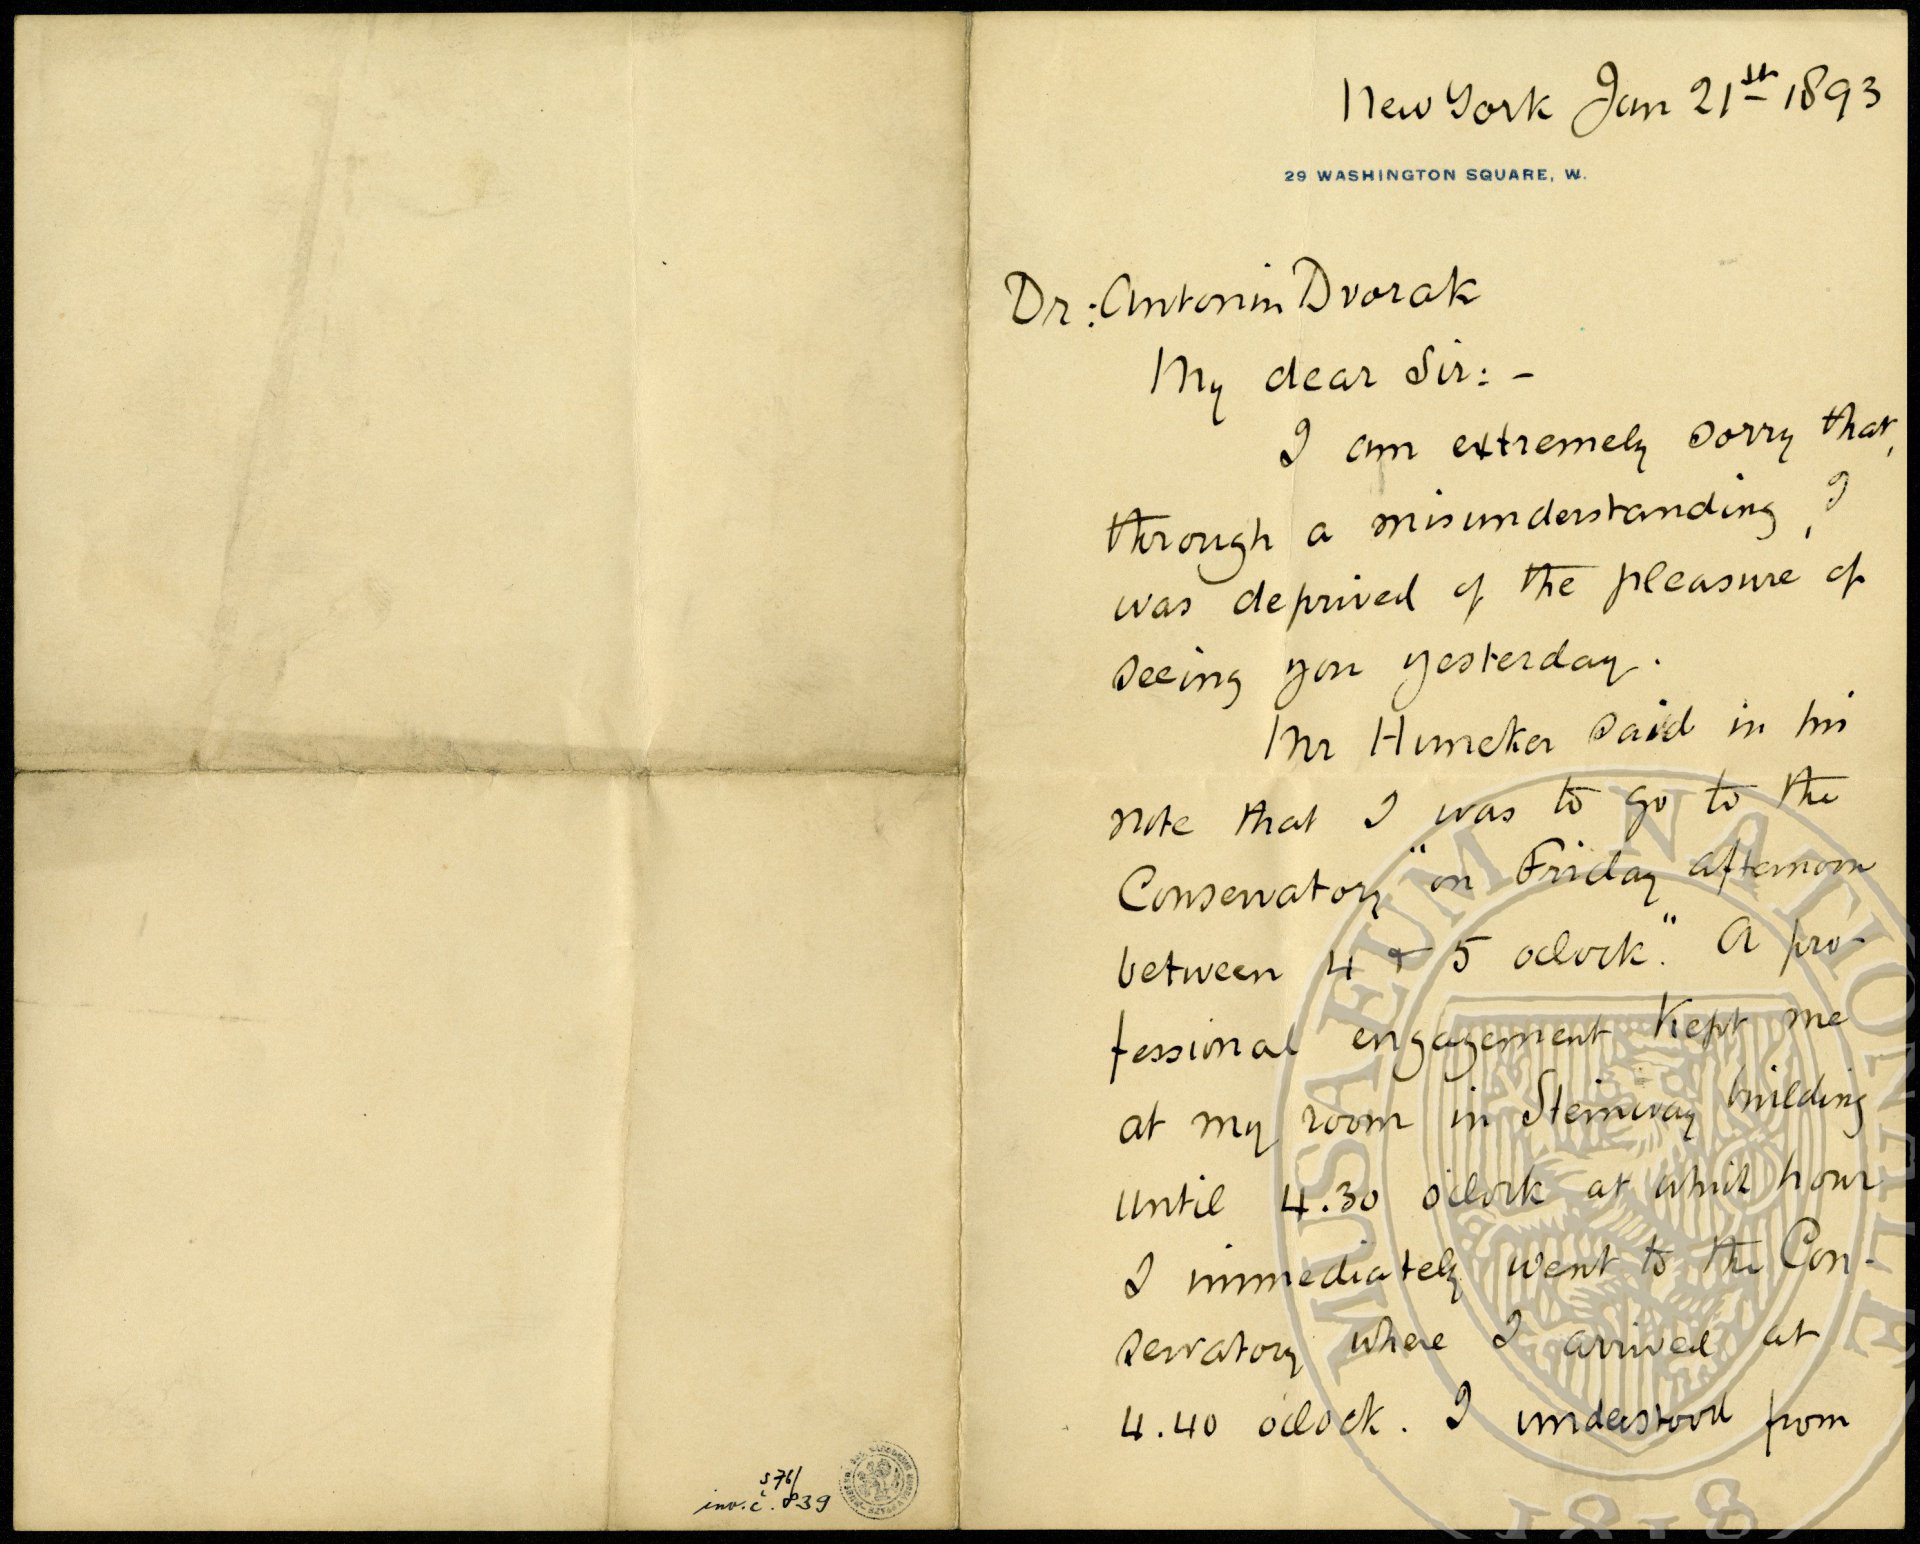 New York Jan 21st 1893
29 WASHINGTON SQUARE, W.
Dr: Antonin Dvorak
My dear Sir: -
I am extremely sorry that,
through a misunderstanding, I
was deprived of the pleasure of
seeing you yesterday.
Mr Huneker said in his
note that I was to go to the
Conservatory "on Friday afternoon
between 4 & 5 oclock." A pro-
fessional engagement kept me
at my room in Steinway building
until 4.30 oclock at which hour
I immediately went to the Con-
servatory where I arrived at
4.40 oclock. I understood from
S 76/
inv. č. 839
MUSAEUM NATIONALE
1818